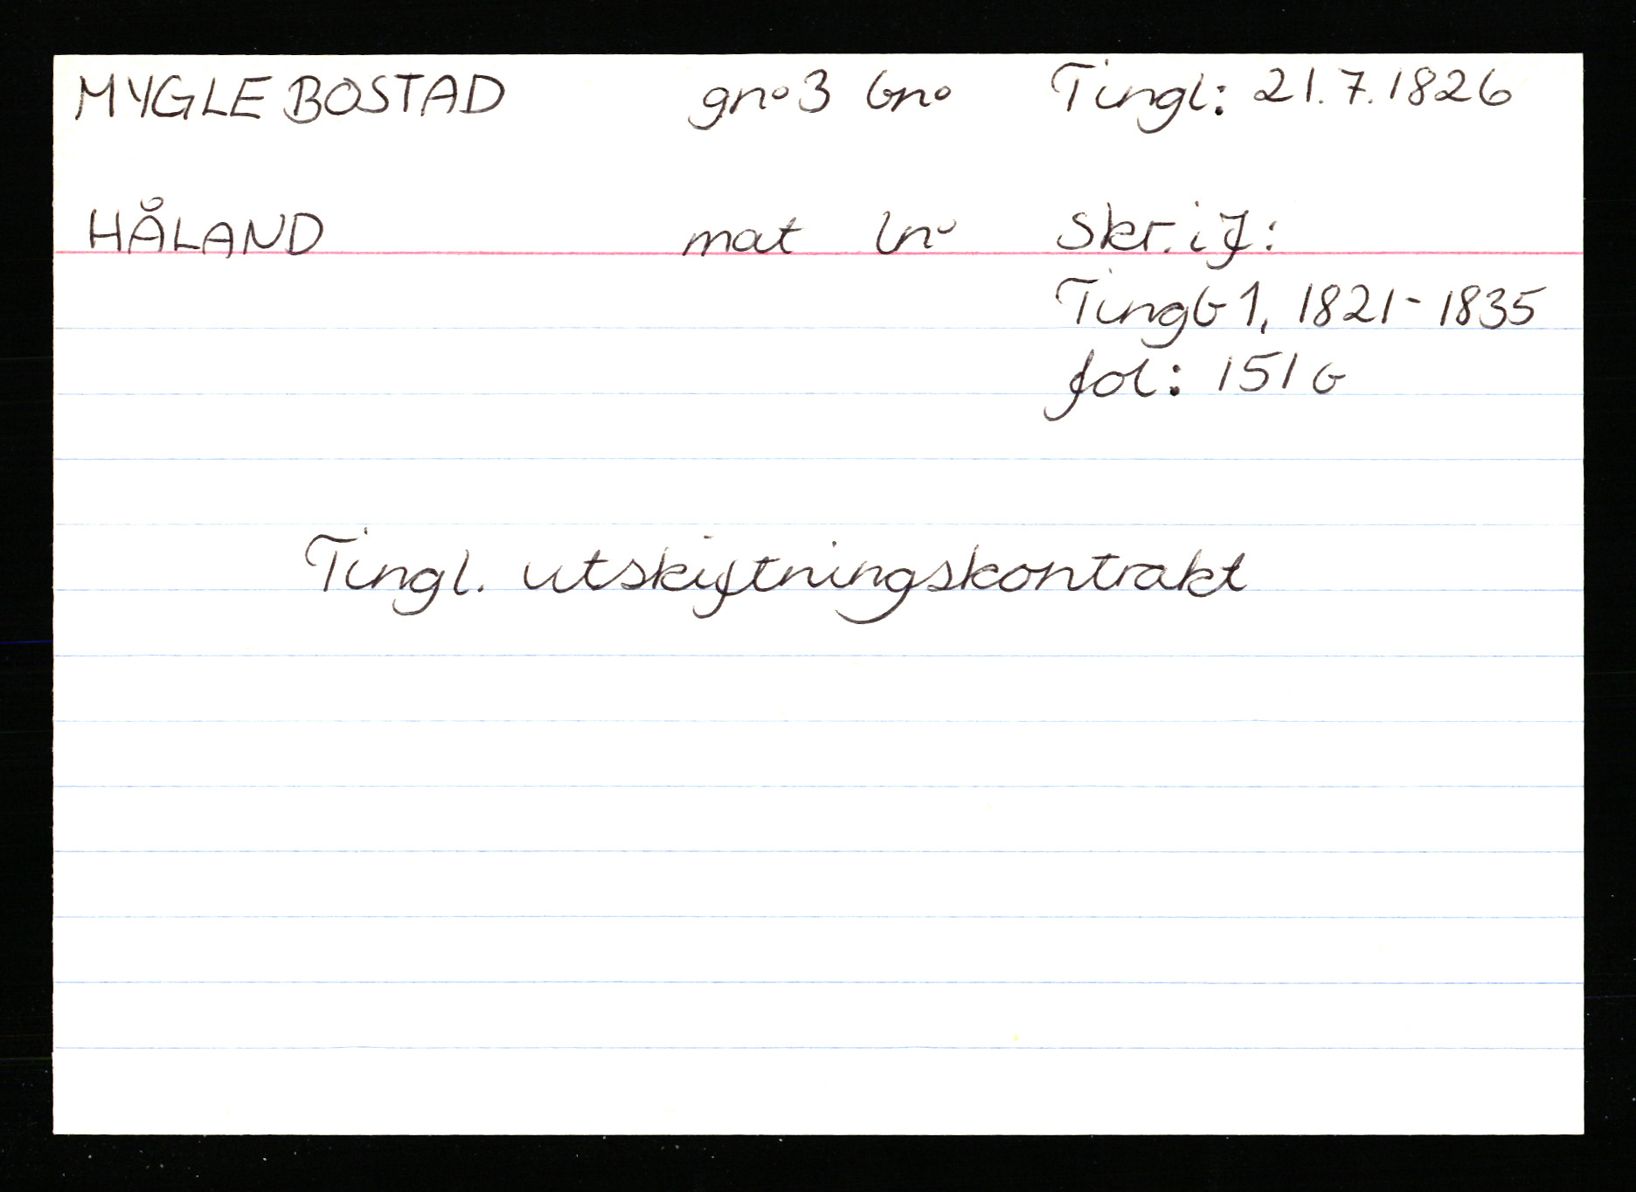 MYGLEBOSTAD gno 3 bno Tingl: 21.7.1826
HÅLAND mat lnr Skr. if:
Tingb 1, 1821-1835
fol: 151 b
Tingl. utskiftningskontrakt